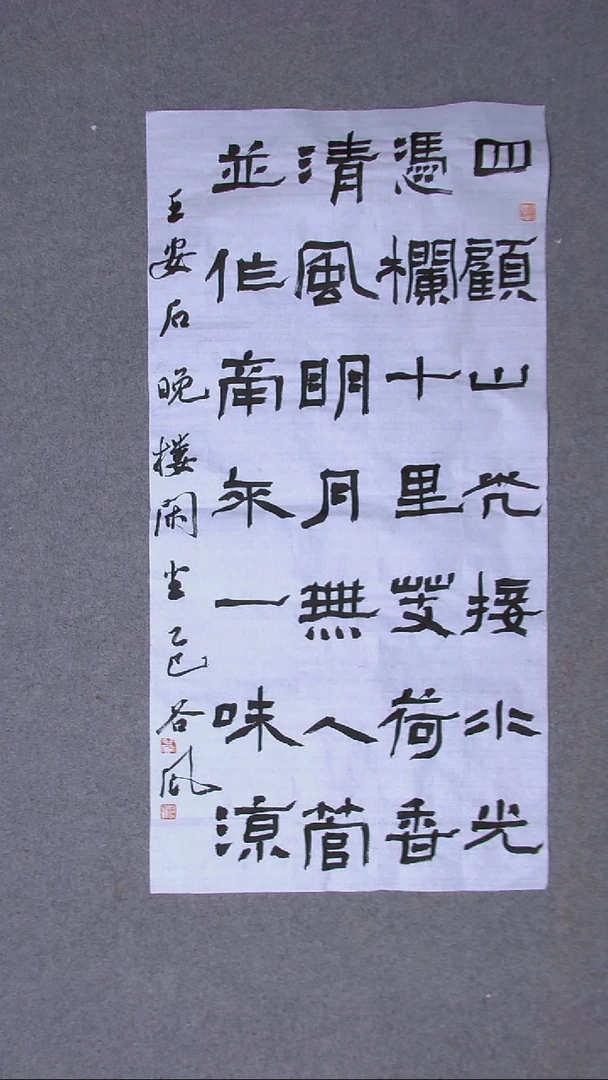 四顧山光接水光
憑欄十里芰荷香
清風明月無人管
並作南来一味涼
王安石晚樓閑坐乙巳谷風